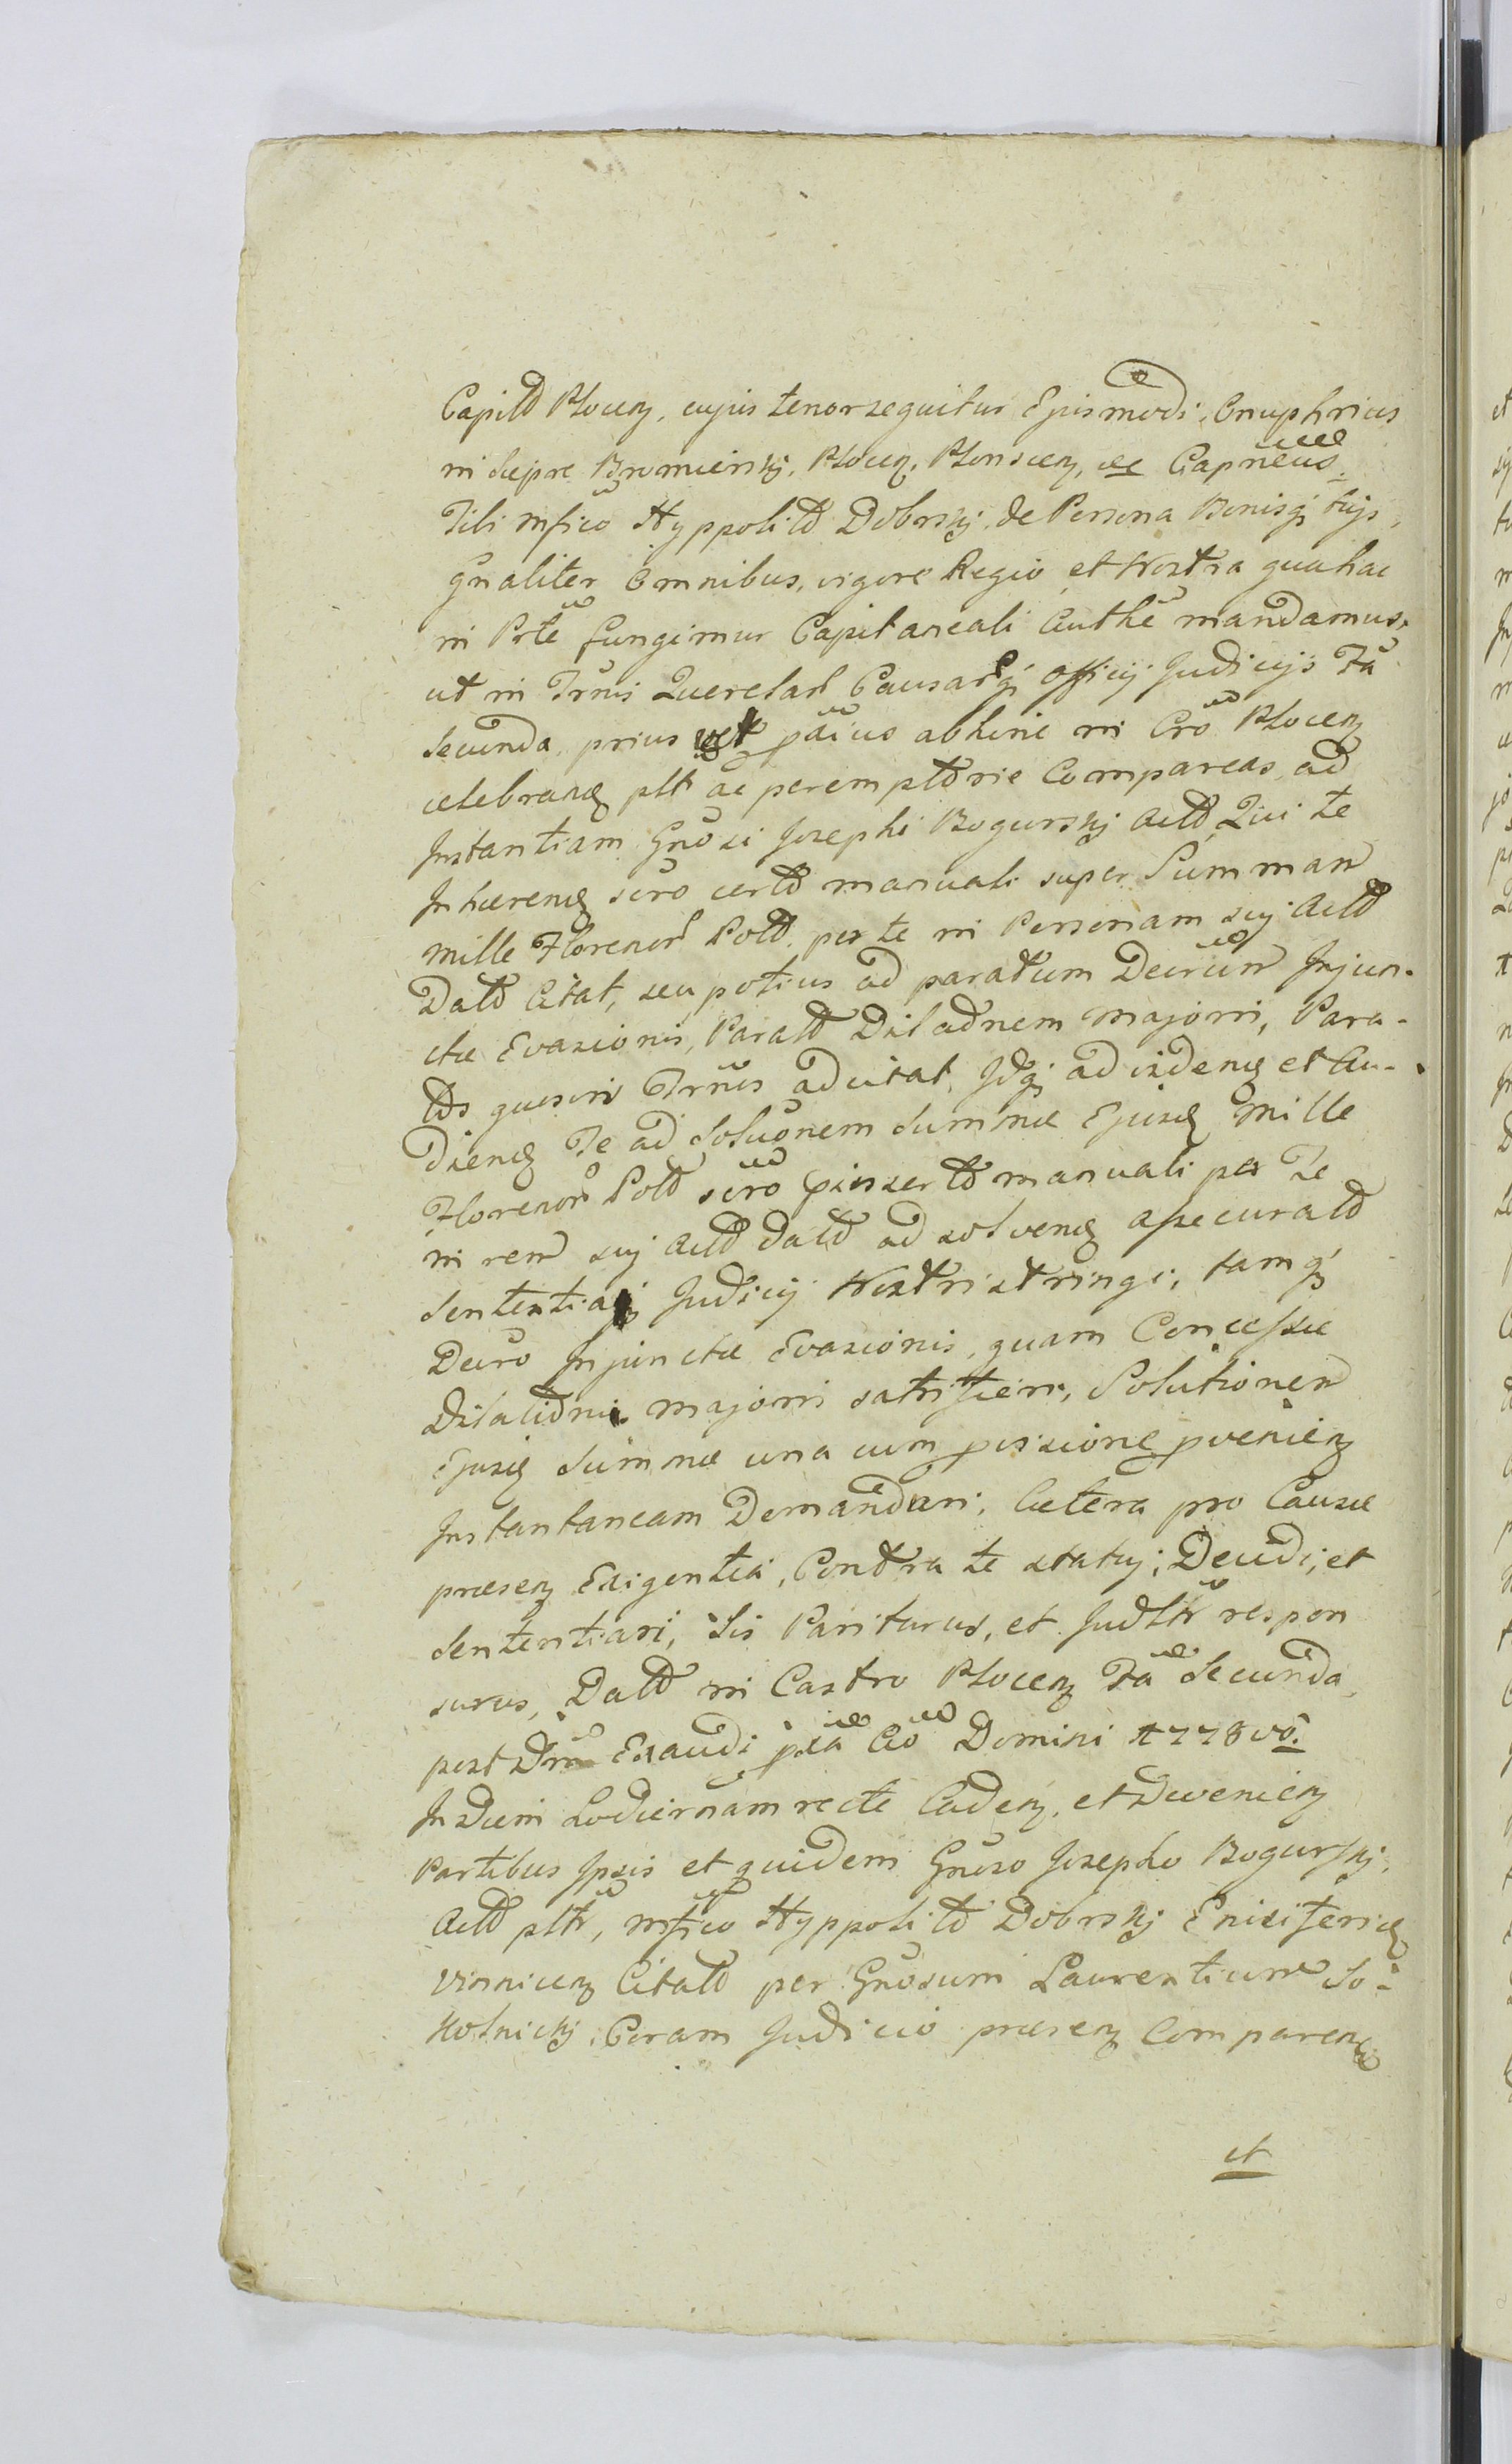 Capitlo Plocen, cujus tenor sequitur Ejusmodi, Onuphrius
in Sierpc Bromierskj, Plocen, Plonscen, etc Capneus.
Tibi Mfico Hyppolito Dobrskj, de Persona Bonisq tujs,
gnaliter Omnibus, vigore Regio, et Nostra qua hac
in Prte fungimur Capitaneali Authe mandamus,
ut in Trnis Querelar Causarq Officij Judicijs Fa
Secunda, prius vel paius abhinc in Cro Plocen
celebrand pltr ac peremptorie Compareas, ad
Instantiam Gnosi Josephi Bogurskj Acto, Qui te
Inhaerend scro certo manuali super Summam
Mille Florenor Pol, per te in Personam suj Acto
Dato Citat, seu potius ad paratum Decrum Injun-
ctae Evasionis, Parato Dilaonem majoris, Para-
tos quosvis Trnos adcitat, Idq ad vidend et Au-
diend Te ad Soluonem Summae Ejusd Mille
Florenor Pol scro pinserto manuali per Te
in rem suj Acto dato ad solvend assecurato
Sententiaq Judicij Nostri stringi, tamq
Decro Injunctae Evasionis, quam Concessae
Dilationi majoris satisfieri, Solutionem
Ejusd Summae una cum pvenien
Instantaneam Demandari, Caetera pro Causae
praesen Exigentia, Contra te statuj, Decidi, et
Sententiari, Sis Pariturus, et Judltr respon
surus, Dato in Castro Plocen Fa Secunda,
post Dm Exaudi pxa Ao Domini 1778vo.
In Diem hodiernam recte Caden, et Devenien
Partibus Ipsis et quidem Gnoso Josepho Bogurskj,
Acto pltr, Mfico Hyppolito Dobrskj Ensifero
Vinnicen Citato per Gnosum Laurentium So-
kolnickj, Coram Judicio praesen Comparen
et